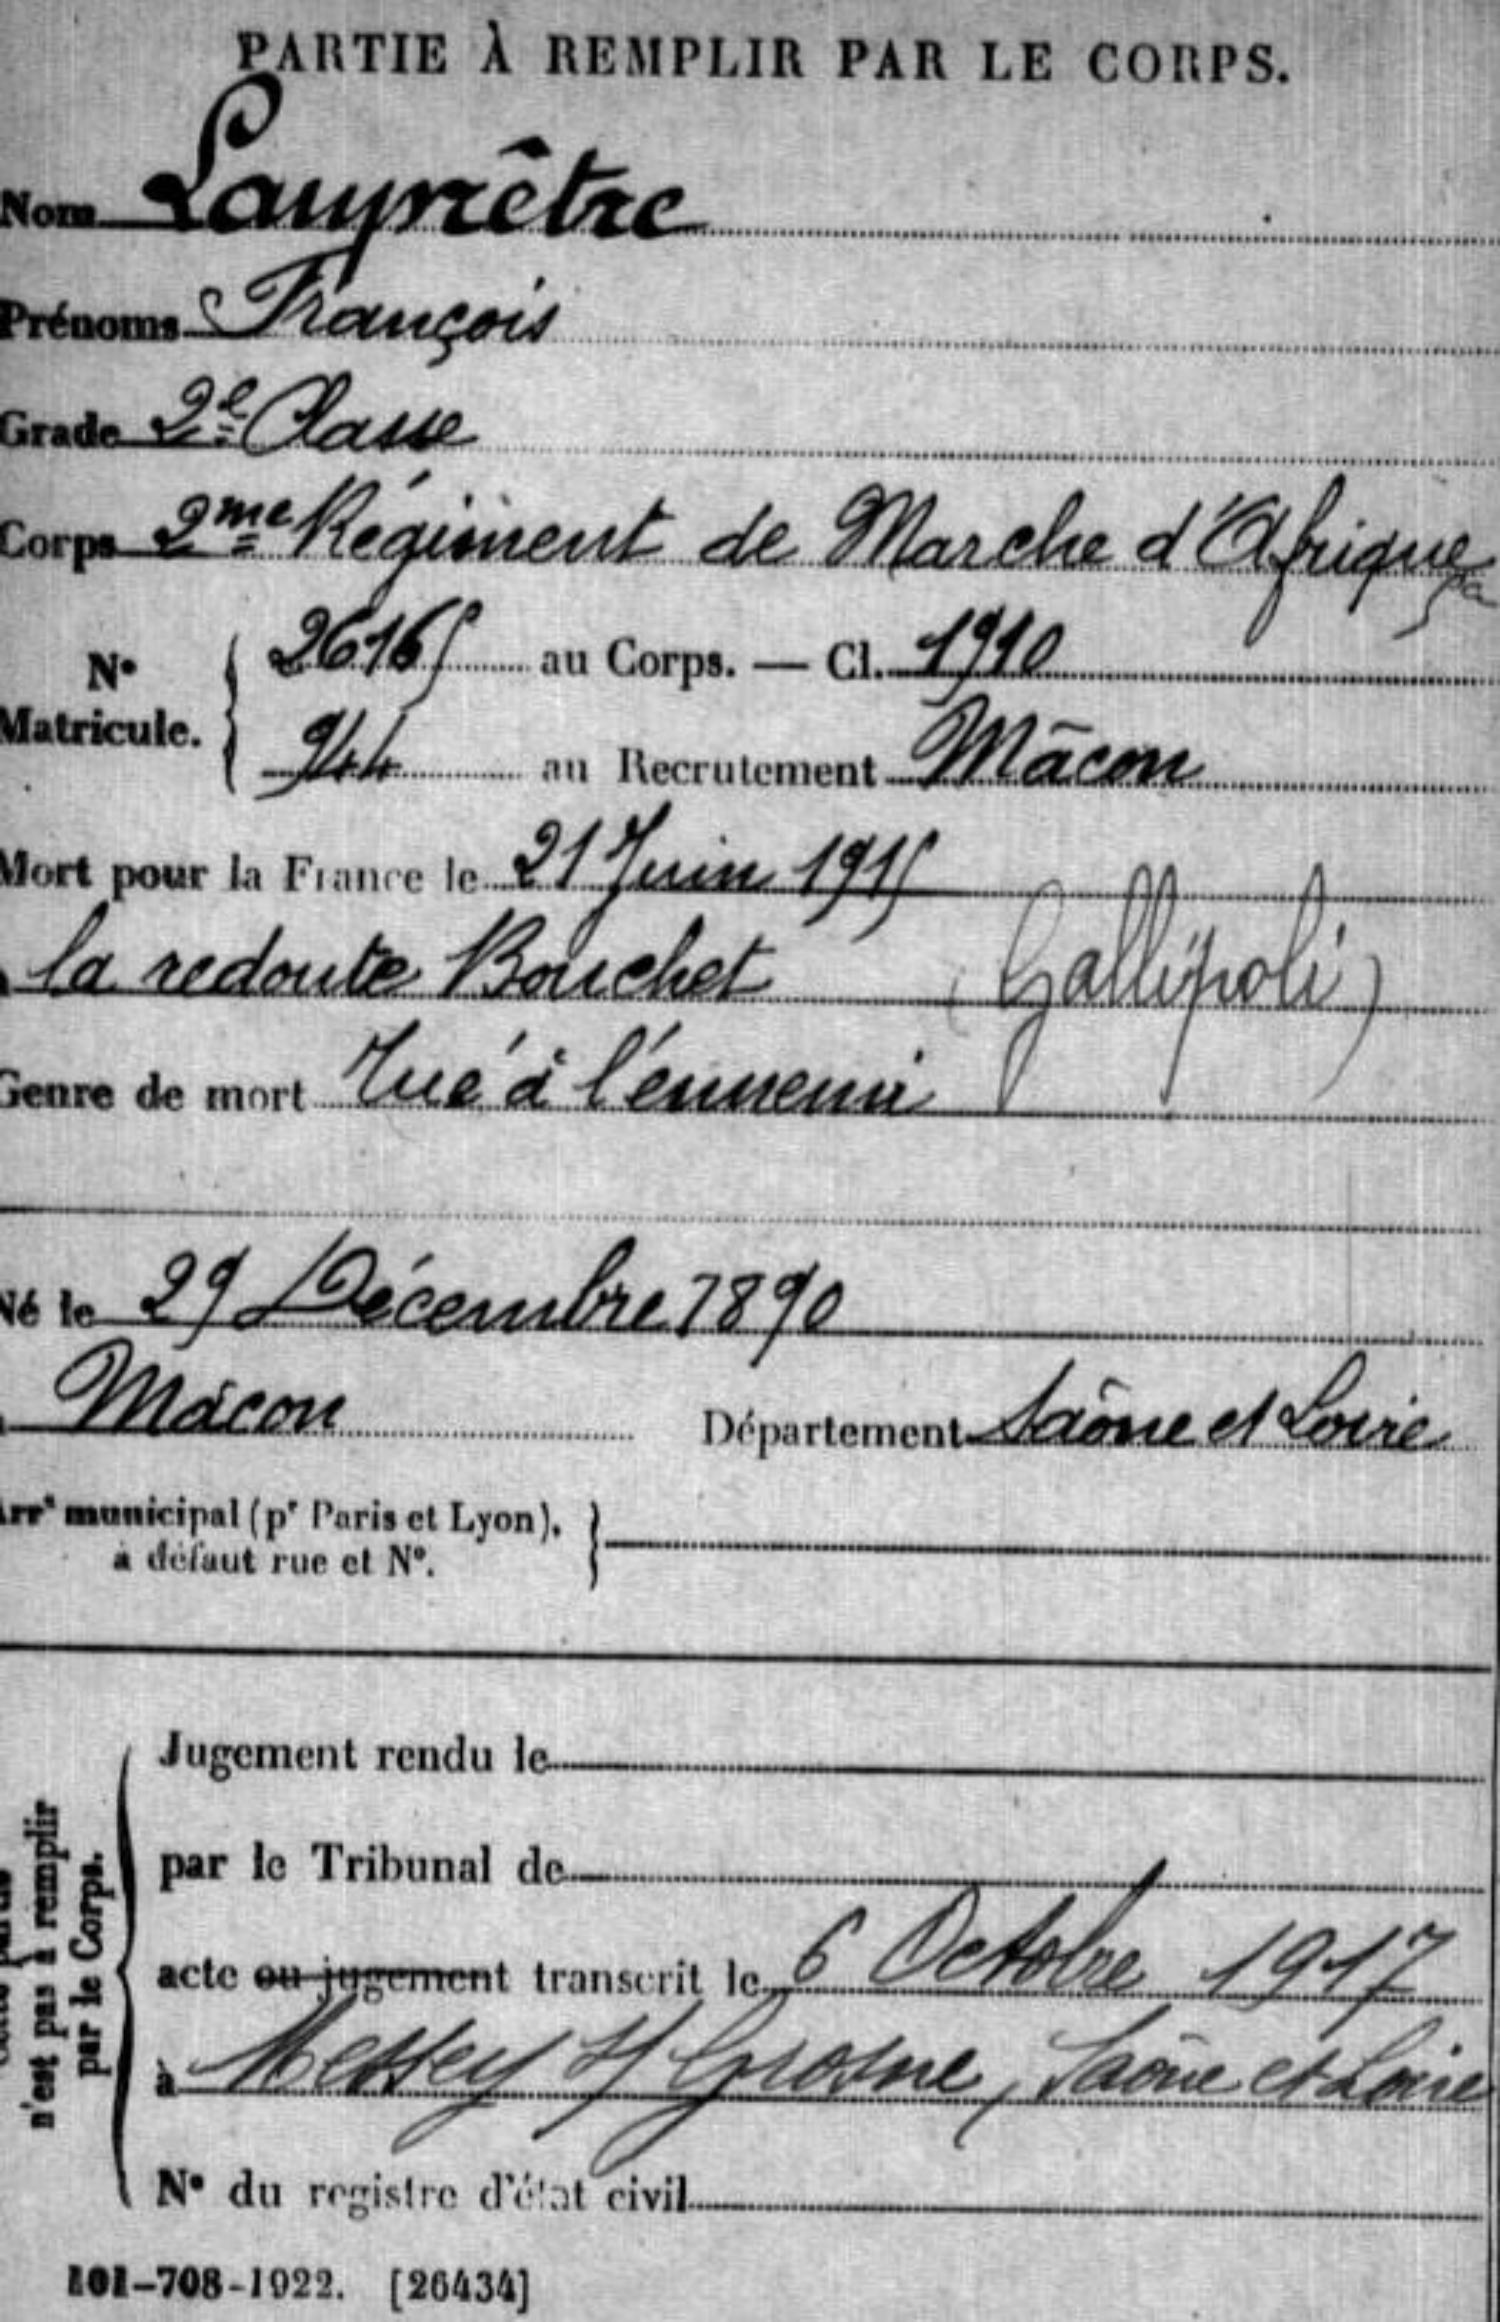 PARTIE À REMPLIR PAR LE CORPS.
Nom Lauprêtre
Prénoms François
Grade 2e Classe
Corps 2me Régiment de Marche d'Afrique
N° Matricule. { 26165 au Corps. — Cl. 1910
944 au Recrutement Mâcon
Mort pour la France le 21 Juin 1915
la redoute Bouchet (Gallipoli)
Genre de mort Tué à l'ennemi
Né le 29 Décembre 1890
Mâcon Département Saône et Loire
Arrt municipal (pr Paris et Lyon), }
à défaut rue et N°.
Jugement rendu le
par le Tribunal de
acte ou jugement transcrit le 6 Octobre 1917
à Messey s/ Grosne, Saône et Loire
N° du registre d'état civil
n'est pas à remplir
par le Corps.
101-708-1922. [26434]